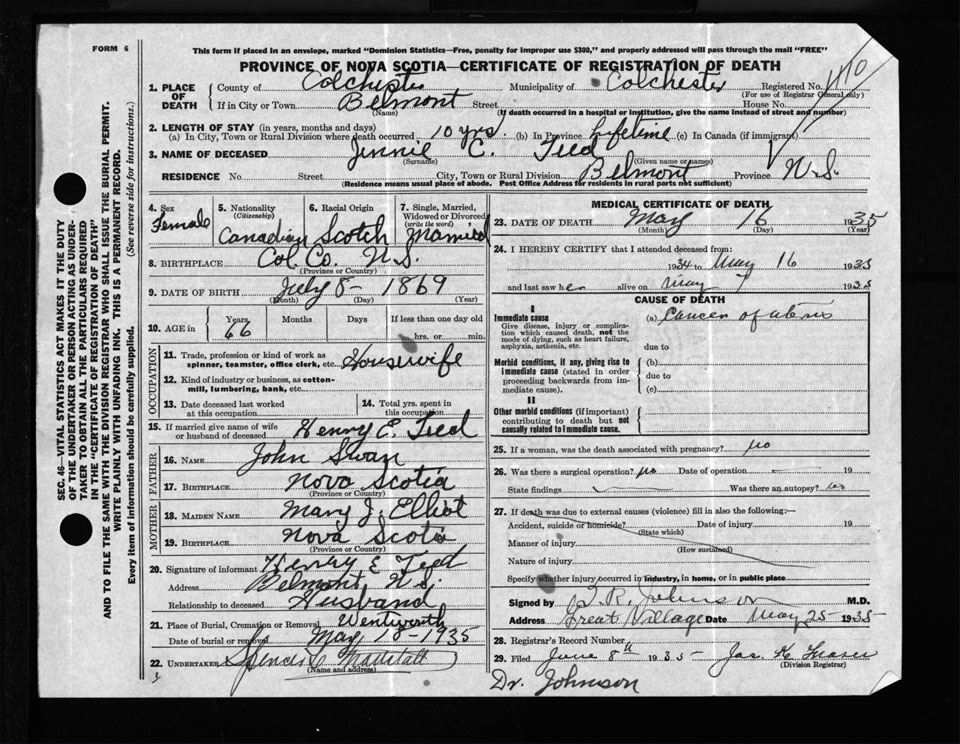 FORM 6
This form if placed in an envelope, marked "Dominion Statistics—Free, penalty for improper use $300," and properly addressed will pass through the mail "FREE"
PROVINCE OF NOVA SCOTIA—CERTIFICATE OF REGISTRATION OF DEATH
1. PLACE OF DEATH County of Colchester Municipality of Colchester Registered No.
(For use of Registrar General only)
If in City or Town Belmont Street House No.
(Name) (If death occurred in a hospital or institution, give the name instead of street and number)
2. LENGTH OF STAY (in years, months and days)
(a) In City, Town or Rural Division where death occurred 10 yrs. (b) In Province Lifetime (c) In Canada (if immigrant)
3. NAME OF DECEASED Jennie C. Teed
(Surname) (Given name or names)
RESIDENCE No. Street City, Town or Rural Division Belmont Province N.S.
(Residence means usual place of abode. Post Office Address for residents in rural parts not sufficient)
4. Sex Female
5. Nationality (Citizenship) Canadian
6. Racial Origin Scotch
7. Single, Married, Widowed or Divorced (write the word) Married
8. BIRTHPLACE Col. Co. N.S.
(Province or Country)
9. DATE OF BIRTH July 8 - 1869
(Month) (Day) (Year)
10. AGE in Years 66 Months Days If less than one day old
hrs. or min.
OCCUPATION
11. Trade, profession or kind of work as spinner, teamster, office clerk, etc. Housewife
12. Kind of industry or business, as cotton-mill, lumbering, bank, etc.
13. Date deceased last worked at this occupation
14. Total yrs. spent in this occupation
15. If married give name of wife or husband of deceased Henry E. Teed
FATHER
16. NAME John Swan
17. BIRTHPLACE Nova Scotia
(Province or Country)
MOTHER
18. MAIDEN NAME Mary J. Elliot
19. BIRTHPLACE Nova Scotia
(Province or Country)
20. Signature of informant Henry E Teed
Address Belmont, N.S.
Relationship to deceased Husband
21. Place of Burial, Cremation or Removal Wentworth
Date of burial or removal May 18 - 1935
22. UNDERTAKER
(Name and address)
MEDICAL CERTIFICATE OF DEATH
23. DATE OF DEATH May 16 1935
(Month) (Day) (Year)
24. I HEREBY CERTIFY that I attended deceased from:
1934 to May 16 1935
and last saw her alive on May 7 1935
CAUSE OF DEATH
I
Immediate cause (a) Cancer of uterus
Give disease, injury or complication which caused death, not the mode of dying, such as heart failure, asphyxia, asthenia, etc.
due to
Morbid conditions, if any, giving rise to immediate cause (stated in order proceeding backwards from immediate cause).
(b)
due to
(c)
II
Other morbid conditions (if important) contributing to death but not causally related to immediate cause.
25. If a woman, was the death associated with pregnancy? no
26. Was there a surgical operation? no Date of operation 19
State findings Was there an autopsy? no
27. If death was due to external causes (violence) fill in also the following:—
Accident, suicide or homicide? Date of injury 19
(State which)
Manner of injury
(How sustained)
Nature of injury
Specify whether injury occurred in industry, in home, or in public place
Signed by T. R. Johnson M.D.
Address Great Village Date May 25 1935
28. Registrar's Record Number
29. Filed June 8th 1935 Jas. K. Fraser
(Division Registrar)
Dr. Johnson
SEC. 46—VITAL STATISTICS ACT MAKES IT THE DUTY
OF THE UNDERTAKER OR PERSON ACTING AS UNDER-
TAKER TO OBTAIN ALL THE PARTICULARS REQUIRED
IN THE "CERTIFICATE OF REGISTRATION OF DEATH"
AND TO FILE THE SAME WITH THE DIVISION REGISTRAR WHO SHALL ISSUE THE BURIAL PERMIT.
WRITE PLAINLY WITH UNFADING INK. THIS IS A PERMANENT RECORD.
Every item of information should be carefully supplied. (See reverse side for instructions.)